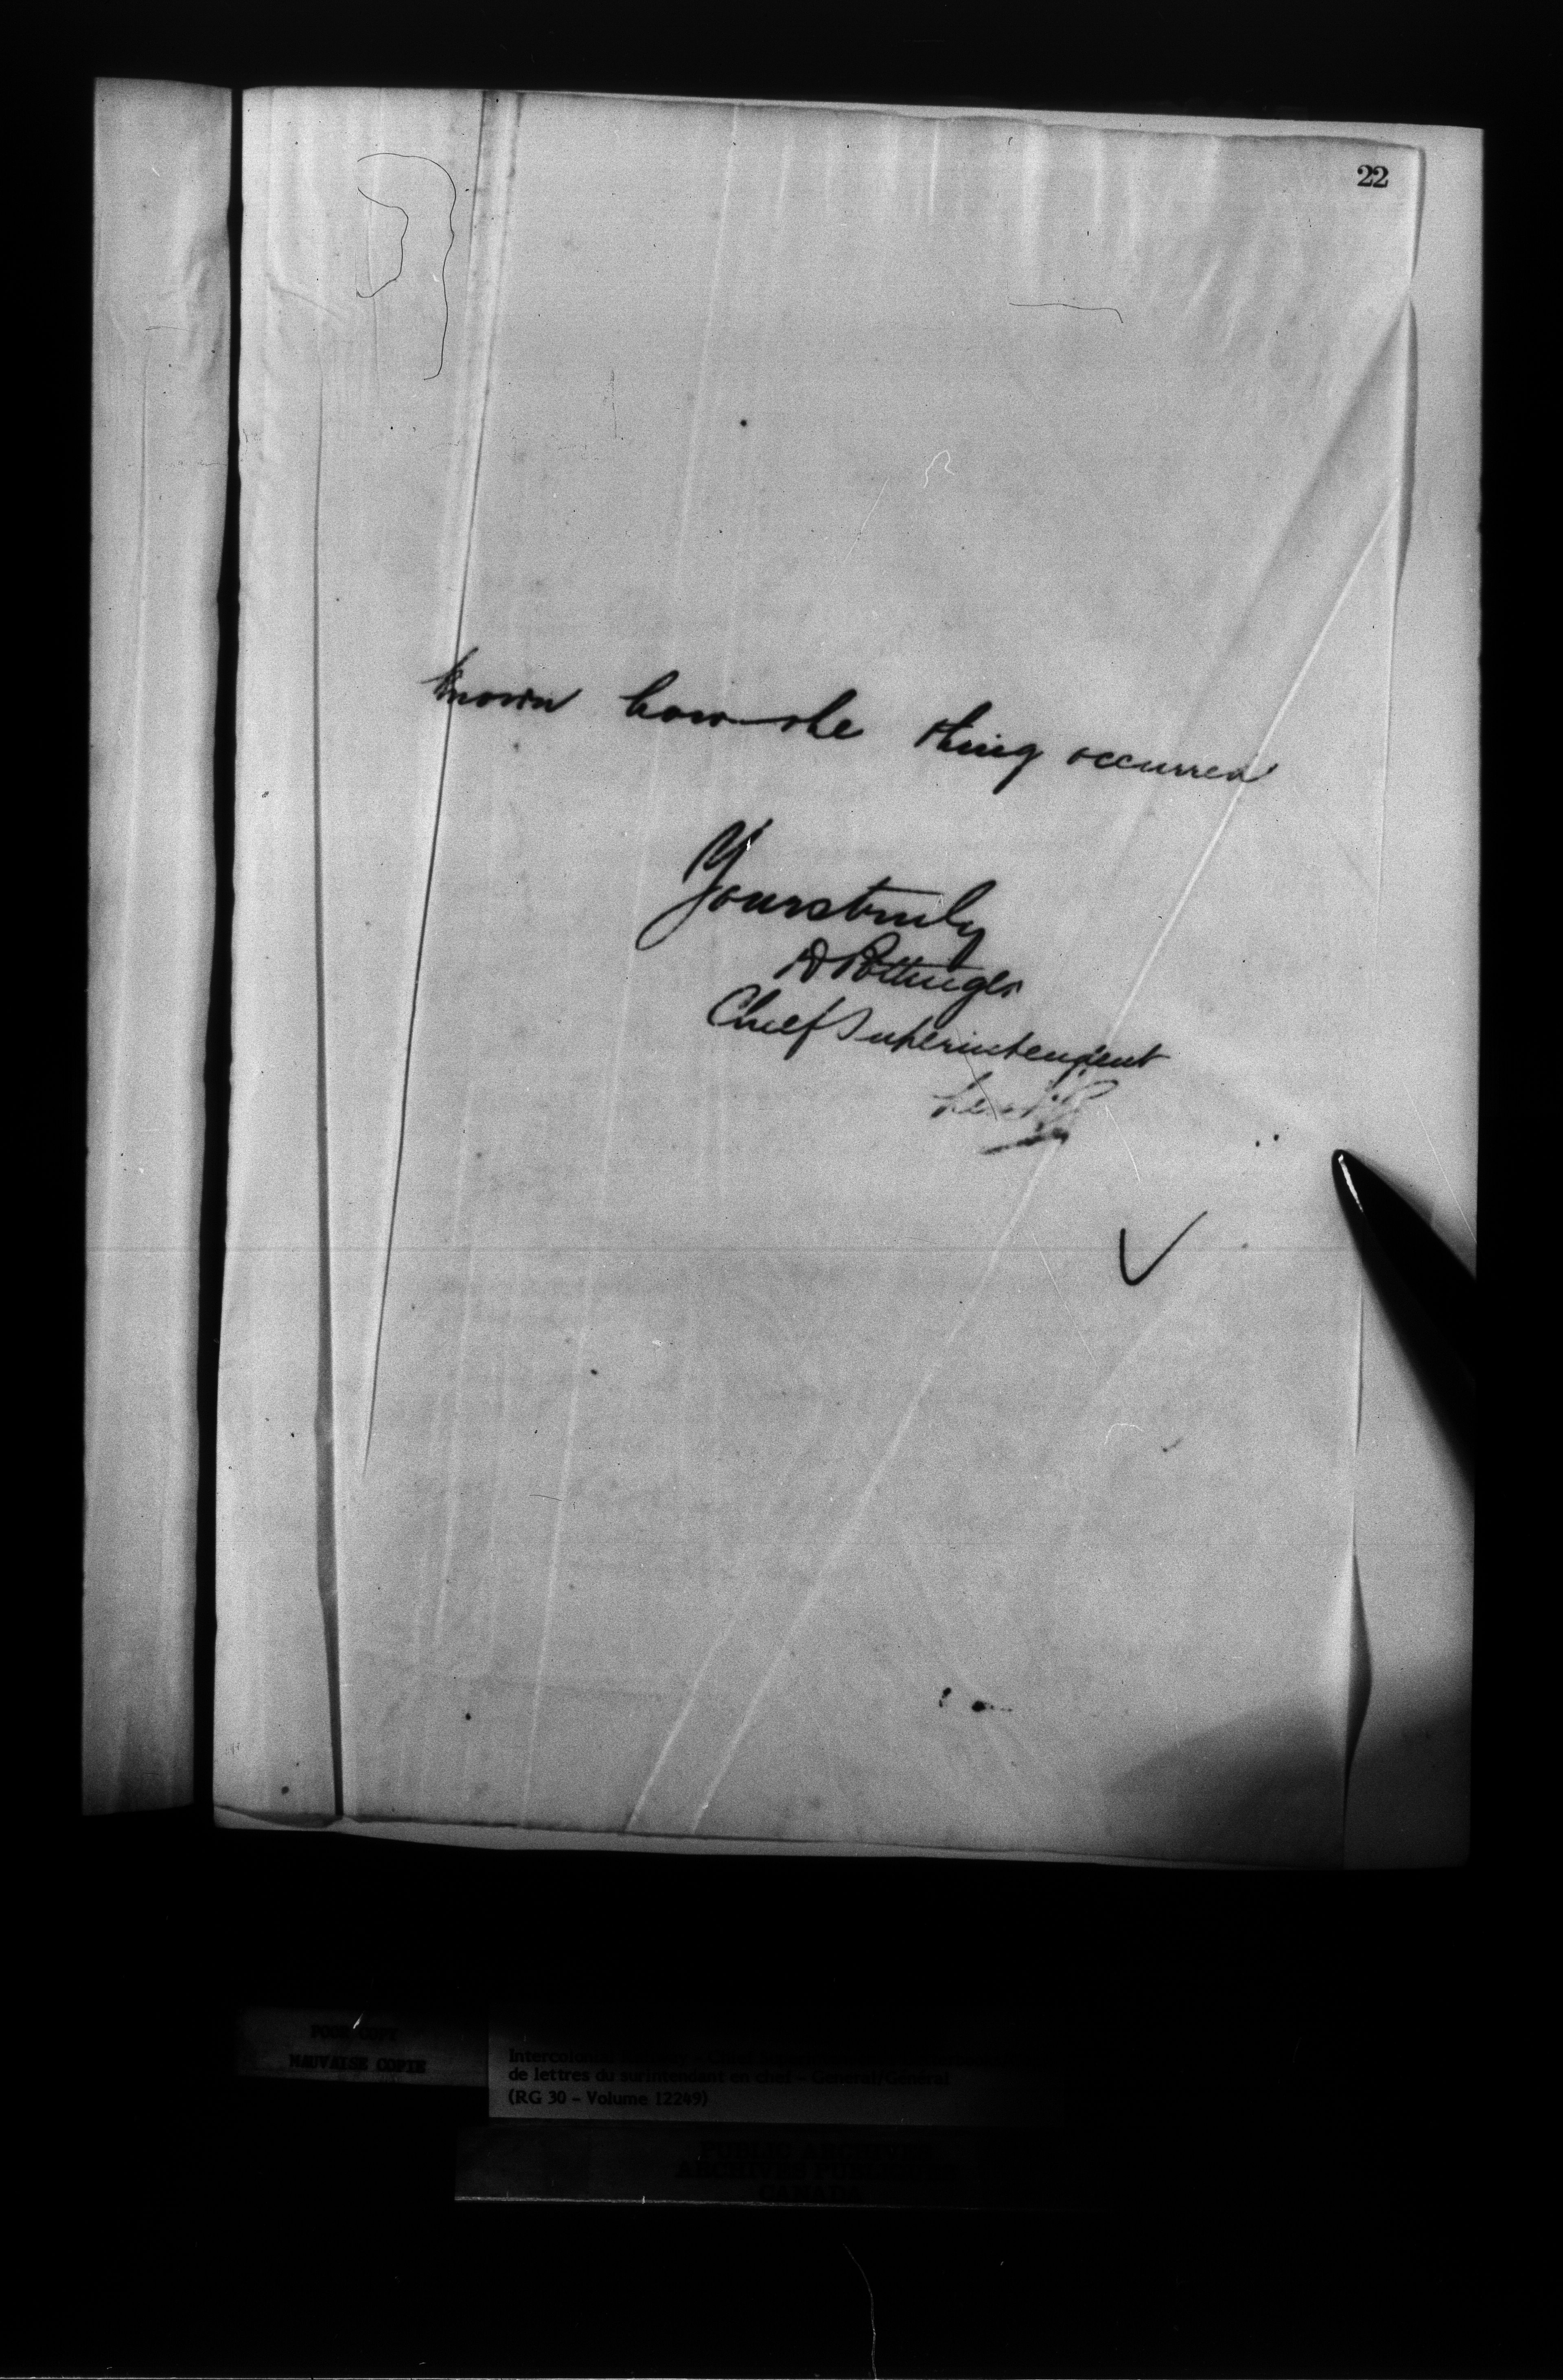 22
known how the thing occurred
Yours truly
D Pottinger
Chief Superintendent
POOR COPY
MAUVAISE COPIE
de lettres du surintendant en chef - General/Général
(RG 30 - Volume 12249)
PUBLIC ARCHIVES
ARCHIVES PUBLIQUES
CANADA